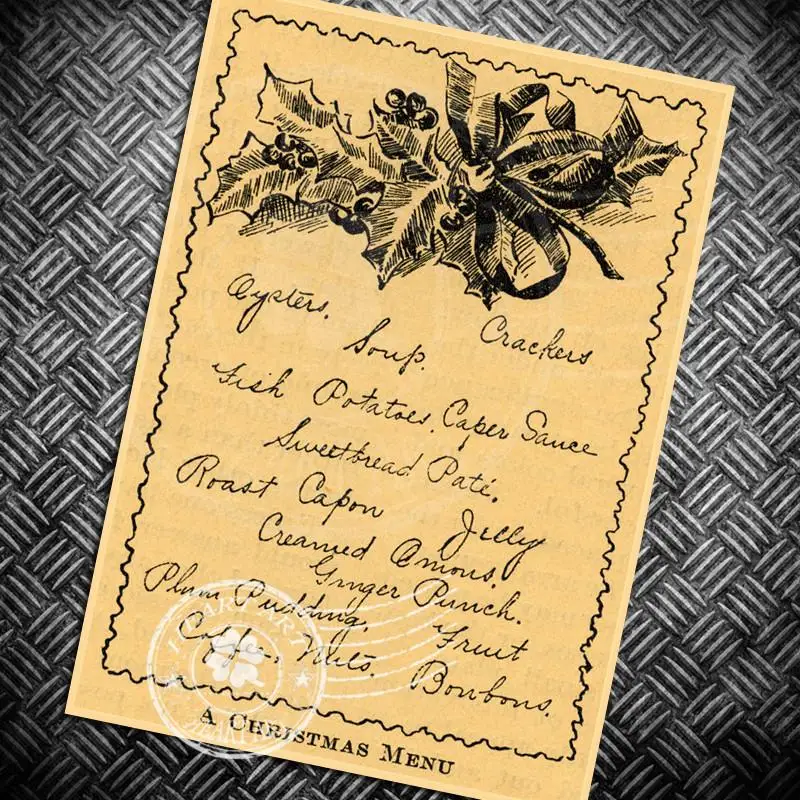 Oysters. Crackers
Soup.
Fish Potatoes. Caper Sauce
Sweetbread Paté.
Roast Capon Jelly
Creamed Onions.
Ginger Punch.
Plum Pudding. Fruit
Coffee. Nuts. Bonbons.
A CHRISTMAS MENU